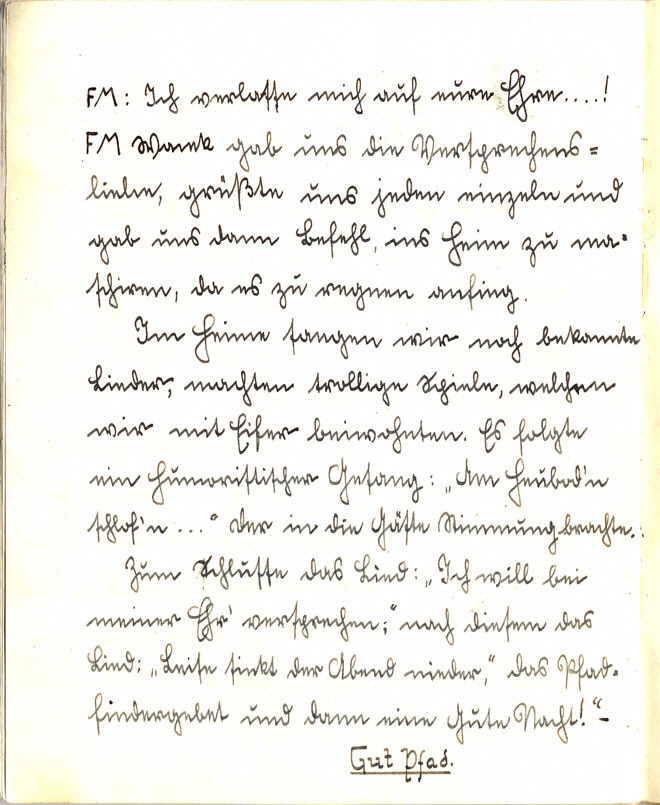 FM: Ich verlasse mich auf eure Ehre....!
FM Wanek gab uns die Versprechens=
lielie, grüßte uns jeden einzeln und
gab uns dann Befehl, ins Heim zu ma-
schiren, da es zu regnen anfing.
Im Heime sangen wir noch bekannte
Lieder, machten trollige Spiele, welchen
wir mit Eifer beiwohnten. Es folgte
ein humoristischer Gesang: „Am Heubod'n
schlof'n ..." der in die Gäste Stimmung brachte.
Zum Schlusse das Lied: „Ich will bei
meiner Ehr' versprechen;" nach diesem das
Lied: „Leise sinkt der Abend nieder," das Pfad-
findergebet und dann eine Gute Nacht!"-
Gut Pfad.